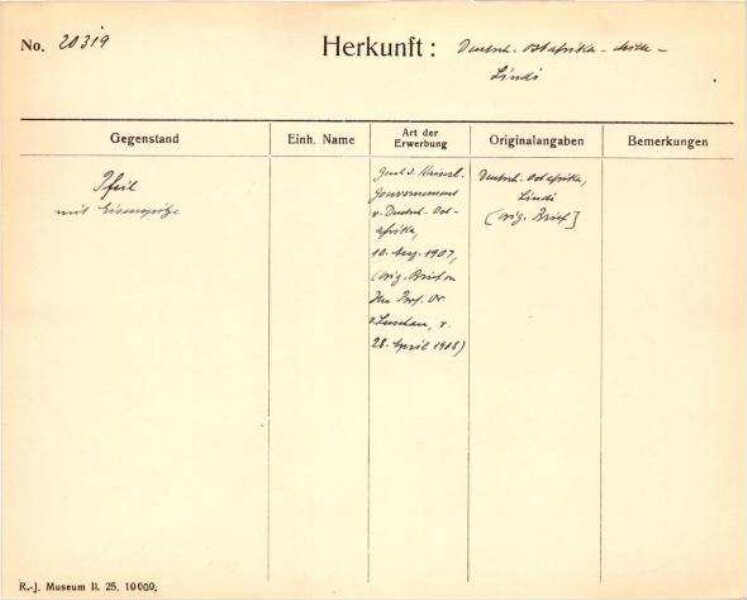 No. 20319
Herkunft: Deutsch. Ostafrika -
Lindi
Gegenstand
Einh. Name
Art der
Erwerbung
Originalangaben
Bemerkungen
Pfeil
mit Eisenspitze
Gesch. v. Kaiserl.
Gouvernement
v. Deutsch. Ost-
afrika,
10. Aug. 1907,
(orig. Brief an
Hrn Prof. Dr
v. Luschan, v.
28. April 1908)
Deutsch. Ostafrika,
Lindi
(orig. Brief]
R.-J. Museum II. 25. 10000.